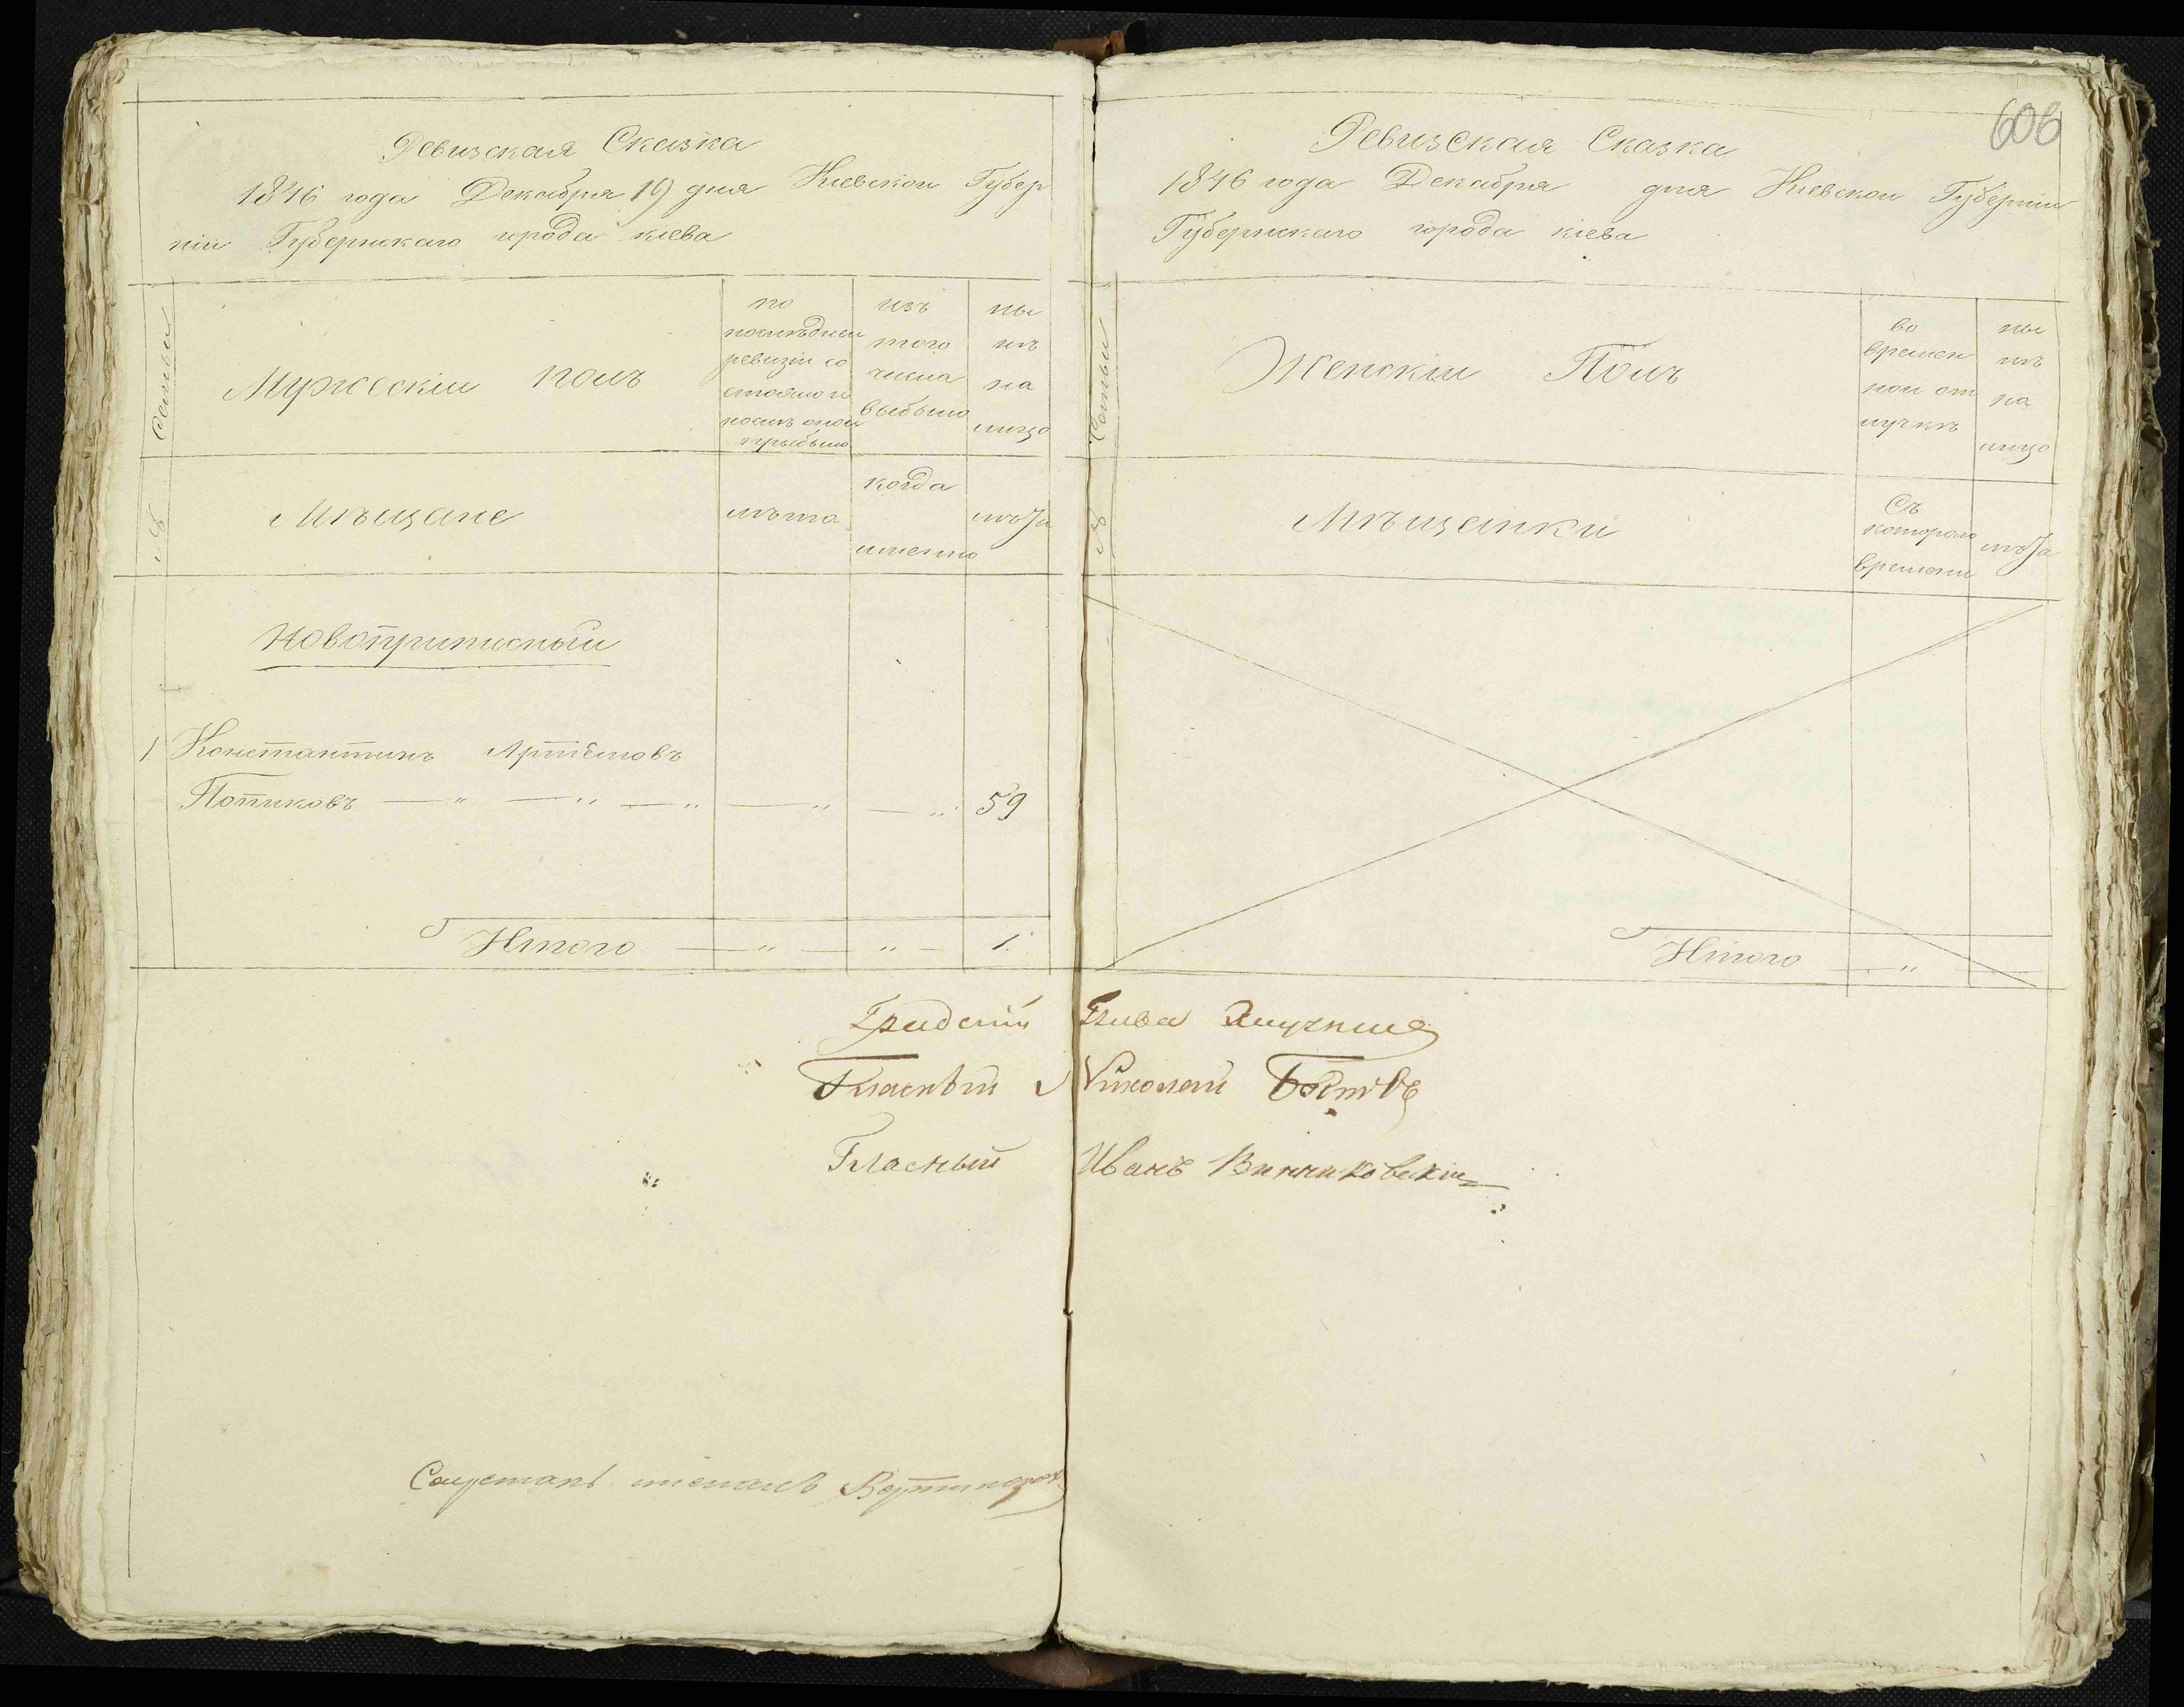 Ревизская Сказка
1846 года Декабря 19 дня Киевскои Губер
ніи Губернскаго города кіева
№ Семьи
Мужескіи полъ
по
последнеи
ревизіи со
стояло и
после онои
прибыло
изъ
того
числа
выбыло
ны
нѣ
на
лицо
Мѣщане
лѣта
когда
именно
лѣта
Новоприписныи
1 Константинъ Артёмовъ
Потиковъ — „ — „ — „ — „ — „ 59
Итого — „ — „ — 1
606
Ревизская Сказка
1846 года Декабря дня Киевскои Губерніи
Губернскаго города кіева
№ Семьи
Женскіи Полъ
во
времен
нои от
лучкѣ
ны
нѣ
на
лицо
Мѣщанки
Съ
котораго
времени
лѣта
Итого — „ —
Градскій Глава
Гласный Николай
Гласный Иванъ Винниковскій